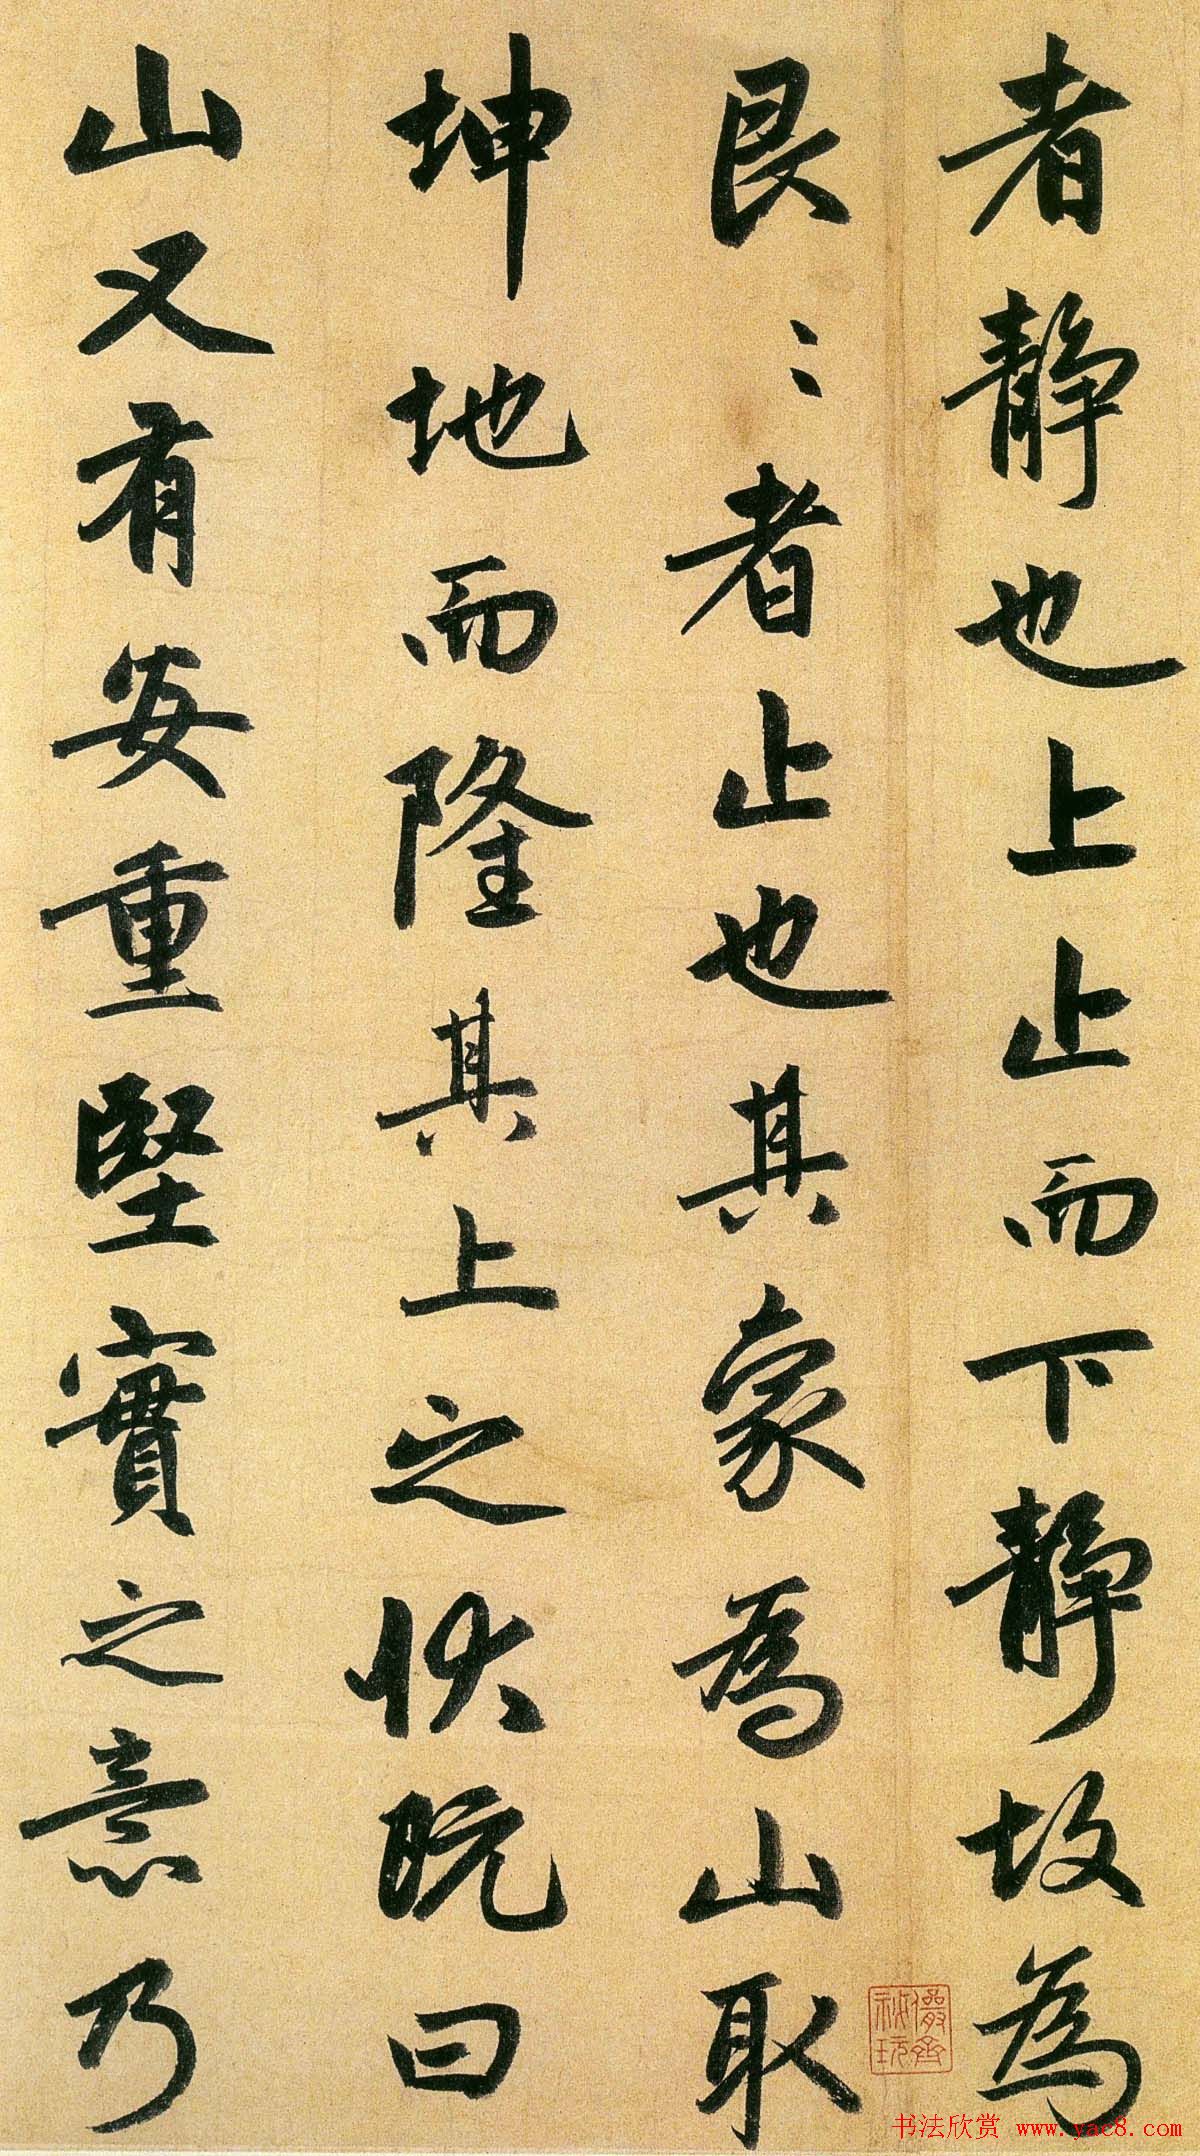 者静也上止而下静故為
艮〻者止也其象為山取
坤地而隆其上之状既曰
山又有安重堅實之意乃
儼齋秘玩
书法欣赏 www.yac8.com